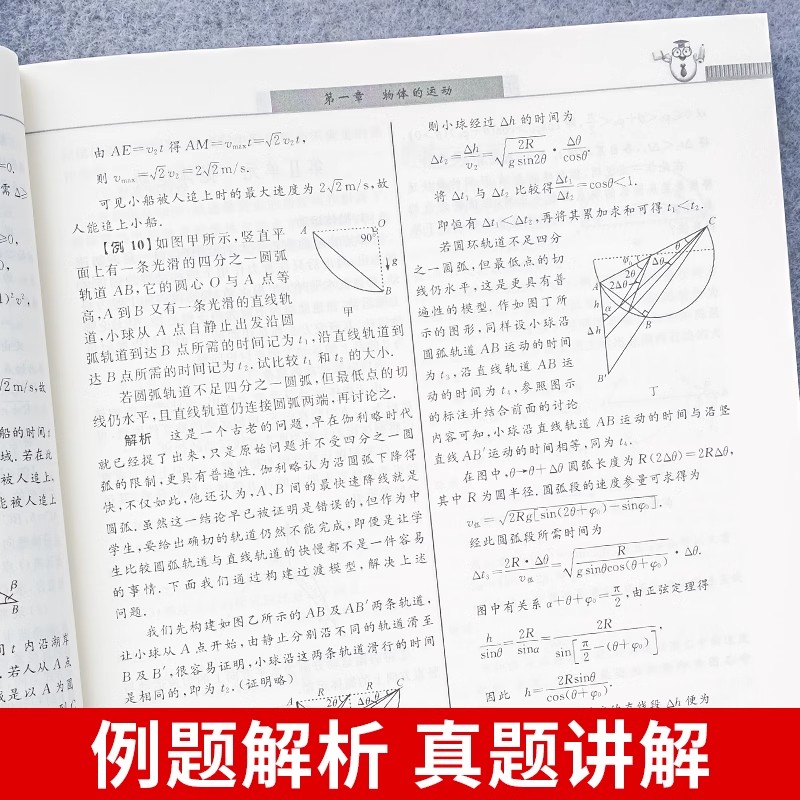 第一章 物体的运动
由 AE=v₂t 得 AM=vₘₐₓt=√2v₂t,
则 vₘₐₓ=√2v₂=2√2m/s.
可见小船被人追上时的最大速度为 2√2m/s,故
人能追上小船.
【例 10】如图甲所示,竖直平
面上有一条光滑的四分之一圆弧
轨道 AB,它的圆心 O 与 A 点等
高,A 到 B 又有一条光滑的直线轨
道,小球从 A 点自静止出发沿圆
弧轨道到达 B 点所需的时间记为 t₁,沿直线轨道到
达 B 点所需的时间记为 t₂.试比较 t₁ 和 t₂ 的大小.
若圆弧轨道不足四分之一圆弧,但最低点的切
线仍水平,且直线轨道仍连接圆弧两端,再讨论之.
A
O
90°
g
B
甲
解析 这是一个古老的问题,早在伽利略时代
就已经提了出来,只是原始问题并不受四分之一圆
弧的限制,更具有普遍性.伽利略认为沿圆弧下降得
快,不仅如此,他还认为,A、B 间的最快速降线就是
圆弧.虽然这一结论早已被证明是错误的,但作为中
学生,要给出确切的轨道仍然不能完成,即便是让学
生比较圆弧轨道与直线轨道的快慢都不是一件容易
的事情.下面我们通过构建过渡模型,解决上述
问题.
我们先构建如图乙所示的 AB 及 AB′两条轨道,
让小球从 A 点开始,由静止分别沿不同的轨道滑至
B 及 B′,很容易证明,小球沿这两条轨道滑行的时间
是相同的,即为 t₂.(证明略)
A R R C
则小球经过 Δh 的时间为
Δt₂=Δh/v₂=√(2R/(g sin2θ))·Δθ/cosθ.
将 Δt₁ 与 Δt₂ 比较得 Δt₁/Δt₂=cosθ<1.
即恒有 Δt₁<Δt₂,再将其累加求和可得 t₁<t₂.
若圆环轨道不足四分
之一圆弧,但最低点的切
线仍水平,这是更具有普
遍性的模型.作如图丁所
示的图形,同样设小球沿
圆弧轨道 AB 运动的时间
为 t₃,沿直线轨道 AB 运
动的时间为 t₄,参照图示
的标注并结合前面的讨论
内容可知,小球沿直线轨道 AB 运动的时间与沿竖
直线 AB′运动的时间相等,同为 t₄.
C
θ
Δθ
φ₀
2θ
2Δθ
A
h
α
Δh
B
B′
丁
在图中,θ→θ+Δθ 圆弧长度为 R(2Δθ)=2RΔθ,
其中 R 为圆半径.圆弧段的速度参量可求得为
v值=√(2Rg[sin(2θ+φ₀)−sinφ₀]).
经此圆弧段所需时间为
Δt₃=2R·Δθ/v值=√(R/(g sinθcos(θ+φ₀)))·Δθ.
图中有关系 α+θ+φ₀=π/2,由正弦定理得
h/sinθ=2R/sinα=2R/sin[π/2−(θ+φ₀)],
因此 h=2Rsinθ/cos(θ+φ₀).
段 Δh 便为
例题解析 真题讲解